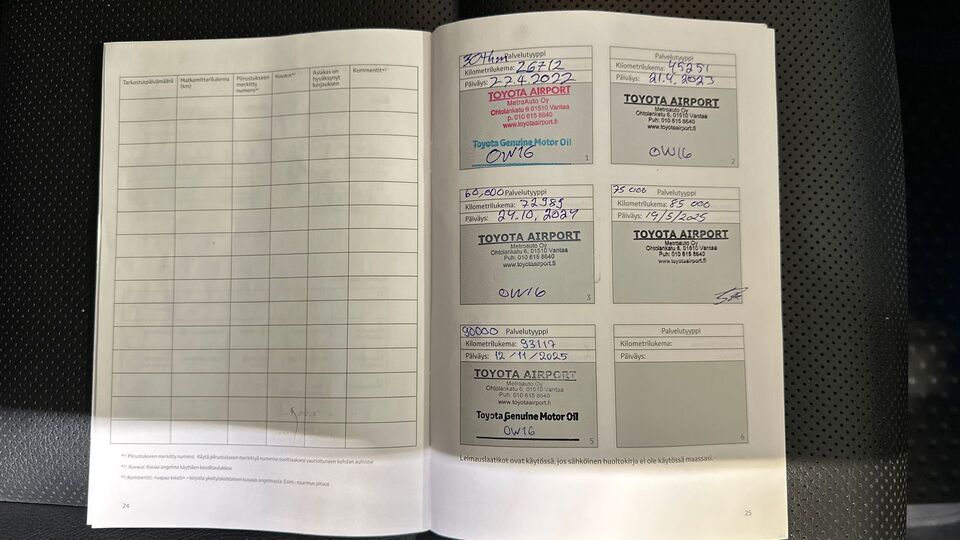 Tarkastuspäivämäärä
Matkamittarilukema (km)
Piirustukseen merkitty numero*¹
Kuvaus*²
Asiakas on hyväksynyt korjauksen
Kommentit*³
*¹: Piirustukseen merkitty numero. Käytä piirustukseen merkittyä numeroa
*²: Kuvaus: Kuvaa ongelma käyttäen
*³: Kommentit: (vapaa teksti)
24
30thkm Palvelutyyppi
Kilometrilukema: 26712
Päiväys: 22.4.2022
TOYOTA AIRPORT
MetroAuto Oy
Ohtolankatu 6 01510 Vantaa
p. 010 615 8640
www.toyotaairport.fi
Toyota Genuine Motor Oil
OW16
1
Palvelutyyppi
Kilometrilukema: 45251
Päiväys: 21.4.2023
TOYOTA AIRPORT
MetroAuto Oy
Ohtolankatu 6, 01510 Vantaa
Puh: 010 615 8640
www.toyotaairport.fi
OW16
2
60,000 Palvelutyyppi
Kilometrilukema: 72989
Päiväys: 24.10.2024
TOYOTA AIRPORT
Metroauto Oy
Ohtolankatu 6, 01510 Vantaa
Puh: 010 615 8640
www.toyotaairport.fi
OW16
3
75 000 Palvelutyyppi
Kilometrilukema: 85 000
Päiväys: 14/5/2025
TOYOTA AIRPORT
Metroauto Oy
Ohtolankatu 6, 01510 Vantaa
Puh: 010 615 8640
www.toyotaairport.fi
90000 Palvelutyyppi
Kilometrilukema: 93117
Päiväys: 12/11/2025
TOYOTA AIRPORT
Metroauto Oy
Ohtolankatu 6, 01510 Vantaa
Puh: 010 615 8640
www.toyotaairport.fi
Toyota Genuine Motor Oil
OW16
5
Palvelutyyppi
Kilometrilukema:
Päiväys:
6
Leimauslaatikot ovat käytössä, jos sähköinen huoltokirja ei ole käytössä maassasi.
25